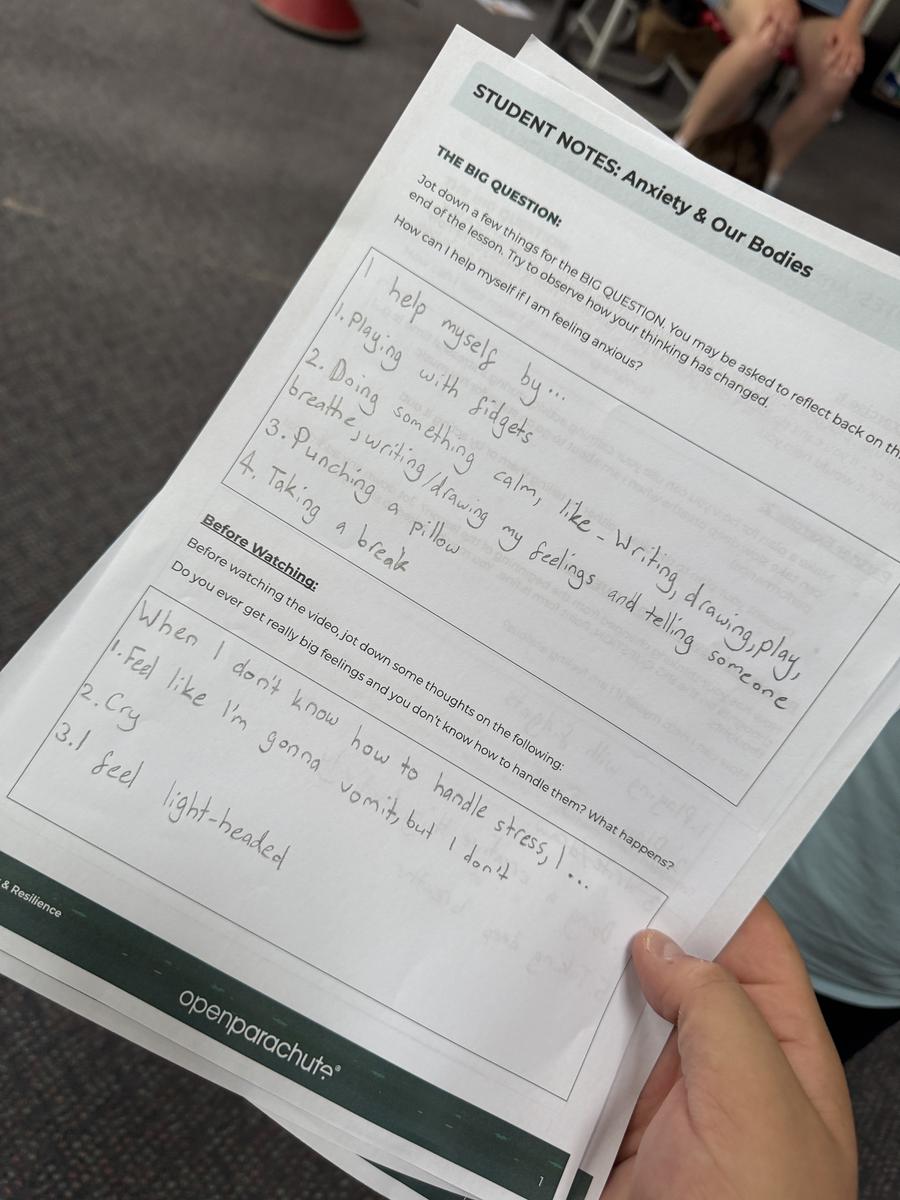 STUDENT NOTES: Anxiety & Our Bodies
THE BIG QUESTION:
Jot down a few things for the BIG QUESTION. You may be asked to reflect back on
end of the lesson. Try to observe how your thinking has changed.
How can I help myself if I am feeling anxious?
I help myself by...
1. Playing with fidgets
2. Doing something calm, like - Writing, drawing, play,
breathe, writing/drawing my feelings and telling someone
3. Punching a pillow
4. Taking a break
Before Watching:
Before watching the video, jot down some thoughts on the following:
Do you ever get really big feelings and you don't know how to handle them? What happens?
When I don't know how to handle stress, I...
1. Feel like I'm gonna vomit, but I don't
2. Cry
3. I feel light-headed
& Resilience
openparachute®
1